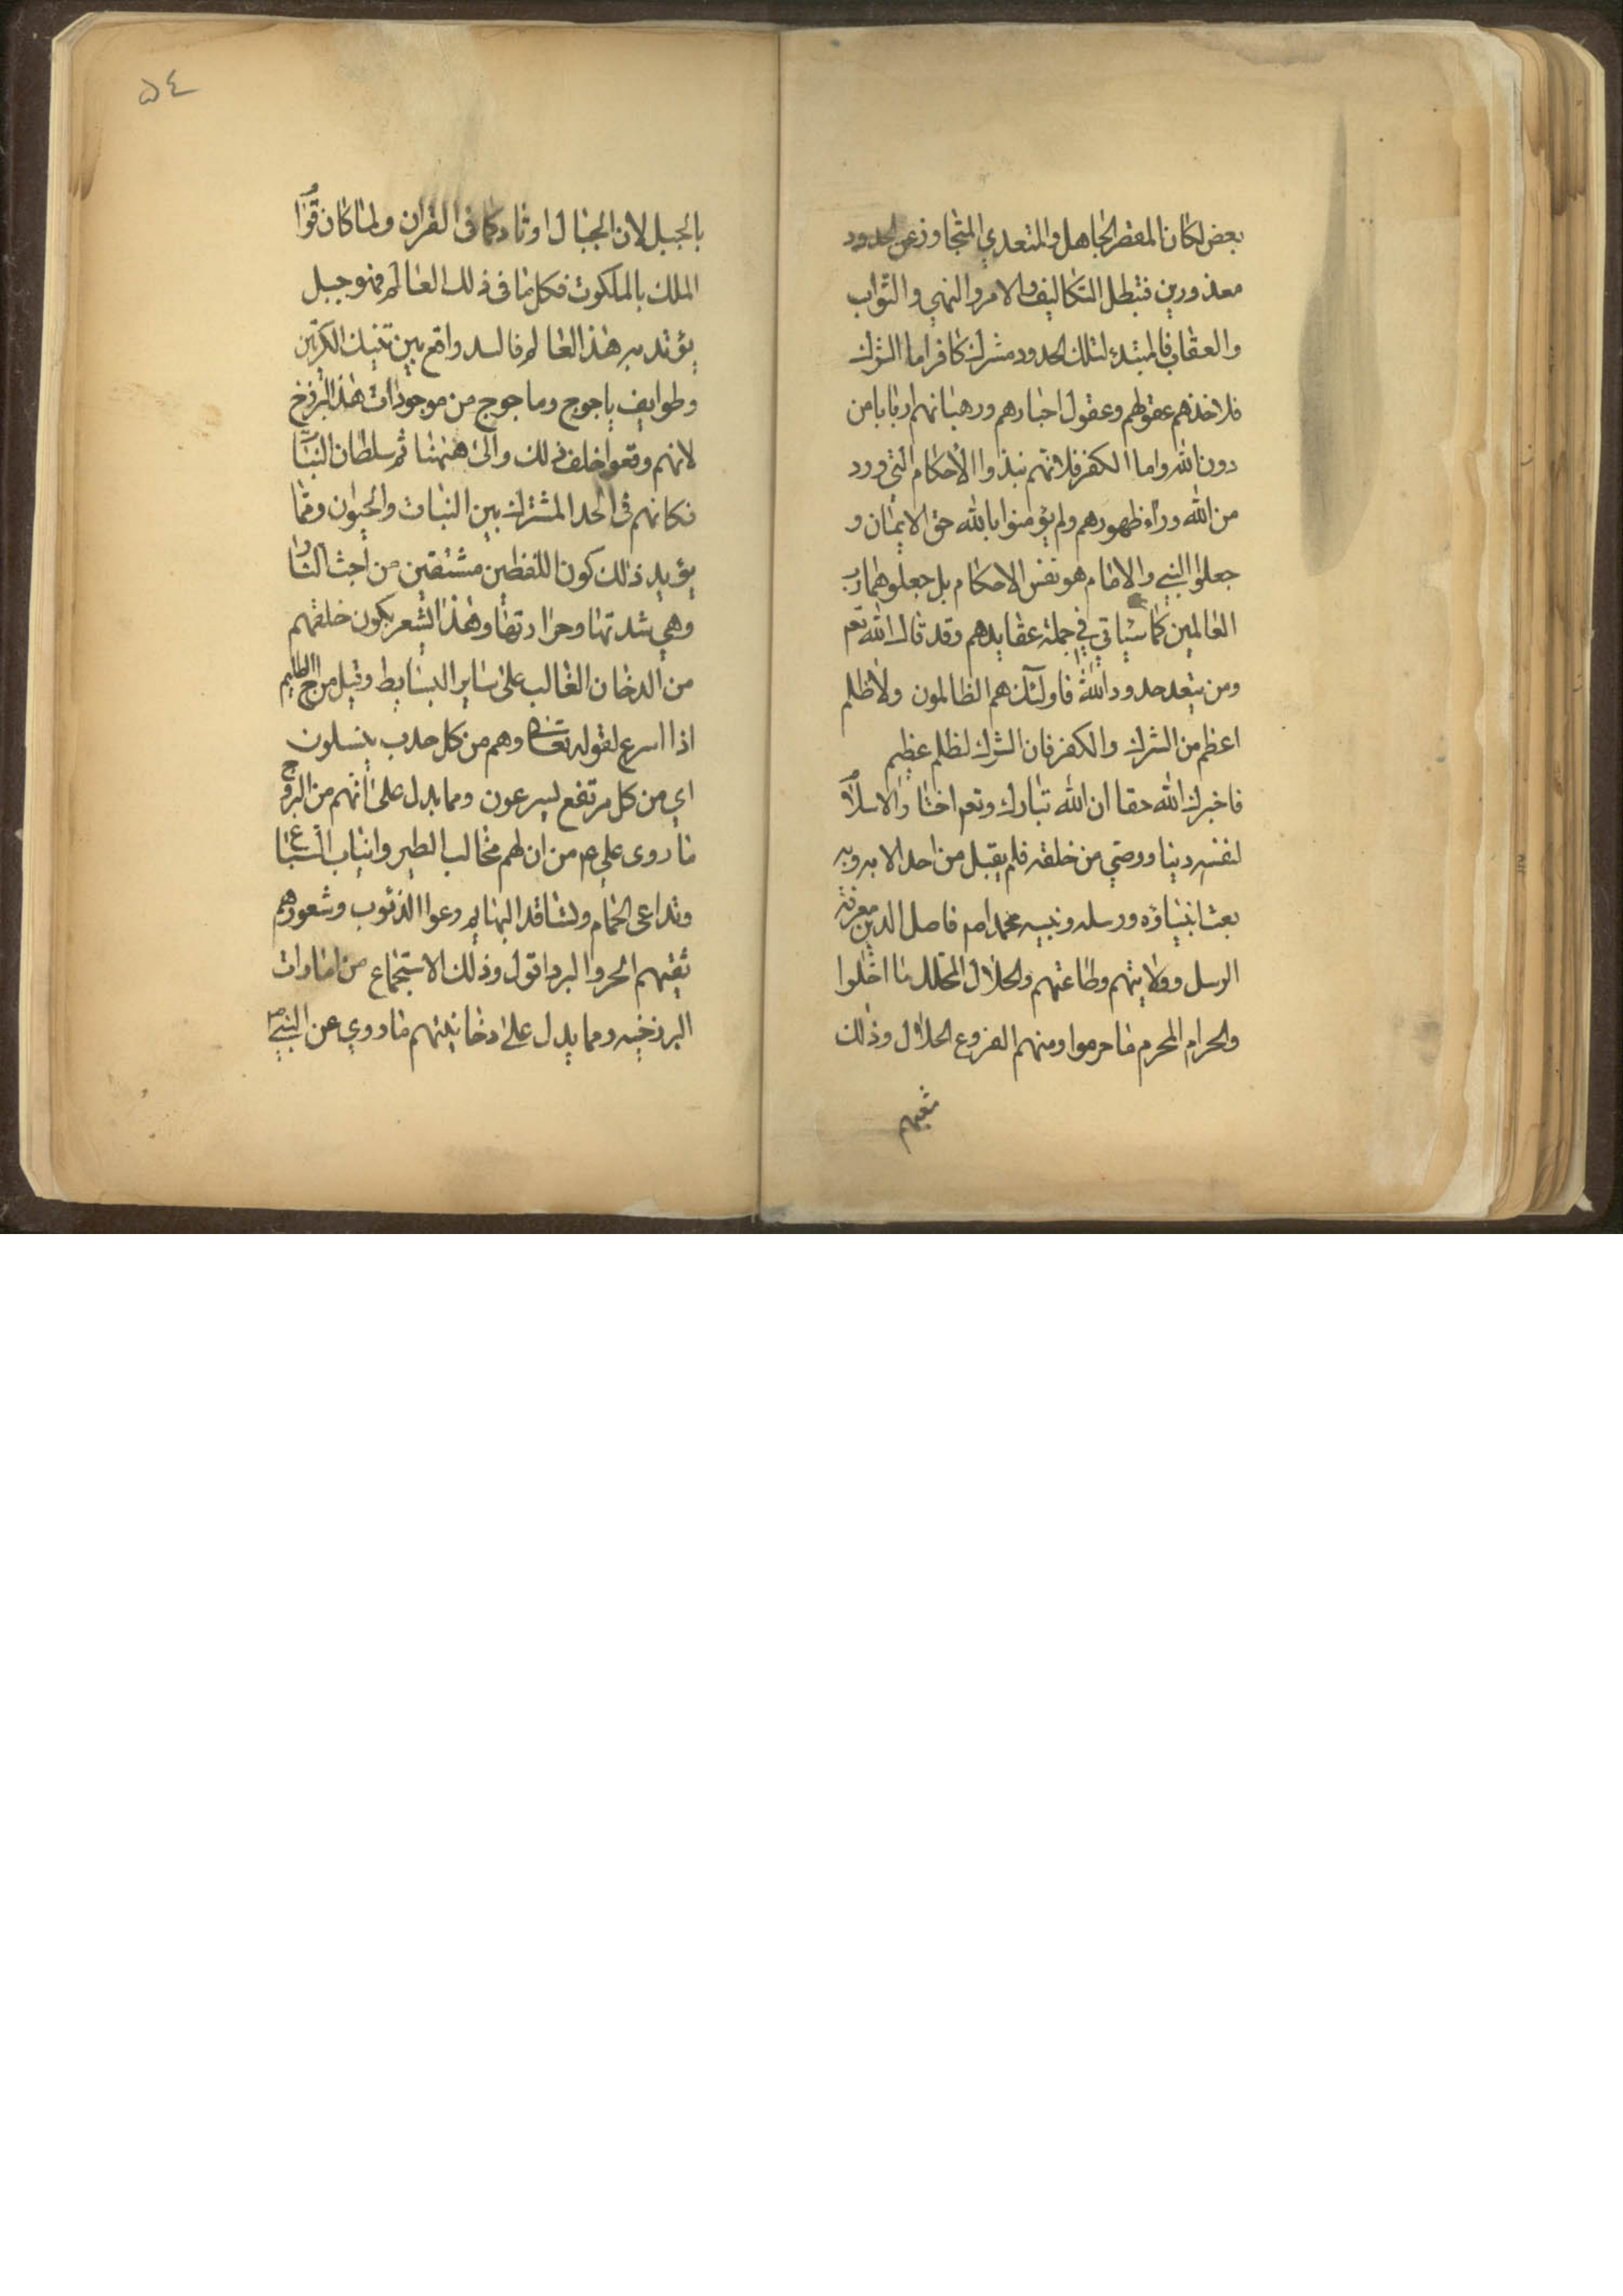 بعض لكان المقصر الجاهل والمتعدي المتجاوز عن الحدود
معذورين فتبطل التكاليف والامر والنهي والثواب
والعقاب فالمبتدء لتلك الحدود مشرك كافر اما الشرك
فلاخذهم عقولهم وعقول احبارهم ورهبانهم اربابا من
دون الله واما الكفر فلانهم نبذوا الاحكام التي ورد
من الله وراء ظهورهم ولم يؤمنوا بالله حق الايمان و
جعلوا النبي والامام هو نفس الاحكام بل جعلوهما رب
العالمين كما سياتي في جملة عقايدهم وقد قال الله تعم
ومن يتعد حدود الله فاولئك هم الظالمون ولا ظلم
اعظم من الشرك والكفر فان الشرك لظلم عظيم
فاخبرك الله حقا ان الله تبارك وتعم اختار الاسلام
لنفسه دينا ورضي من خلقه فلم يقبل من احد الا به وبه
بعث انبياؤه ورسله ونبيه محمدا ص فاصل الدين معرفة
الرسل وولايتهم وطاعتهم والحلال المحلل ما احلوا
والحرام المحرم ما حرموا ومنهم الفروع الحلال وذلك
بالجبل لان الجبال اوتاد كما في القران ولما كان قوام
الملك بالملكوت فكل ما في ذلك العالم فهو جبل
يؤتد به هذا العالم فالسد واقع بين تينك الكرتين
وطوايف ياجوج وماجوج من موجودات هذا البرزخ
لانهم وقعوا خلف ذلك والى هيهنا ثم سلطان النبات
فكانهم في الحد المشترك بين النبات والحيوان ومما
يؤيد ذلك كون اللفظين مشتقين من اجت النار
وهي شدتها وحرارتها وهذا يشعر بكون خلقهم
من الدخان الغالب على ساير البسايط وقيل من اج الظليم
اذا اسرع لقوله تعالى وهم من كل حدب ينسلون
اي من كل مرتفع يسرعون ومما يدل على انهم من البروج
ما روى علي ع من ان لهم مخالب الطير وانياب السباع
وتداعى الحمام وتسافد البهايم وعواء الذئوب وشعورهم
تقيهم الحر والبرد اقول وذلك الاستجماع من امارات
البرزخيه ومما يدل على دخانيتهم ما روي عن النبي ص